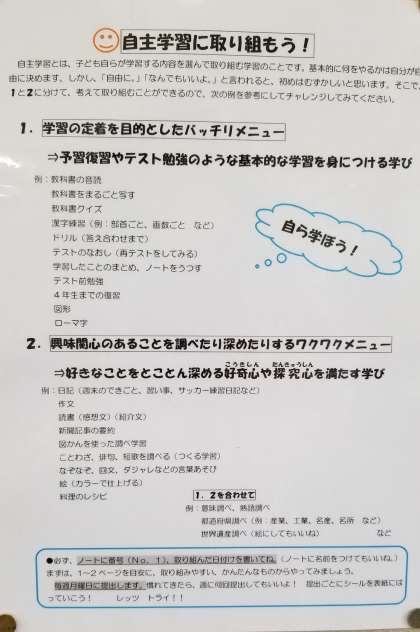 自主学習に取り組もう！
自主学習とは、子ども自らが学習する内容を選んで取り組む学習のことです。基本的に何をやるかは自分が自
由に決めます。しかし、「自由に。」「なんでもいいよ。」と言われると、初めはむずかしいと思います。そこで、
１と２に分けて、考えて取り組むことができるので、次の例を参考にしてチャレンジしてみてください。
１．学習の定着を目的としたバッチリメニュー
⇒予習復習やテスト勉強のような基本的な学習を身につける学び
例：教科書の音読
教科書をまるごと写す
教科書クイズ
漢字練習（例：部首ごと、画数ごと　など）
ドリル（答え合わせまで）
テストのなおし（再テストをしてみる）
学習したことのまとめ、ノートをうつす
テスト前勉強
４年生までの復習
図形
ローマ字
自ら学ぼう！
２．興味関心のあることを調べたり深めたりするワクワクメニュー
⇒好きなことをとことん深める好奇心や探究心を満たす学び
こうきしん　たんきゅうしん
例：日記（週末のできごと、習い事、サッカー練習日記など）
作文
読書（感想文）（紹介文）
新聞記事の要約
図かんを使った調べ学習
ことわざ、俳句、短歌を調べる（つくる学習）
なぞなぞ、回文、ダジャレなどの言葉あそび
絵（カラーで仕上げる）
料理のレシピ
１．２を合わせて
例：意味調べ、熟語調べ
都道府県調べ（例：産業、工業、名産、名所　など）
世界遺産調べ（絵にしてもいいね）　など
●必ず、ノートに番号（Ｎｏ．１）、取り組んだ日付けを書いてね。（ノートに名前をつけてもいいね。）
まずは、１～２ページを目安に、取り組みやすい、かんたんなものからやってみましょう。
毎週月曜日に提出します。慣れてきたら、週に何回提出してもいいよ！　提出ごとにシールを表紙には
っていこう！　レッツ　トライ！！